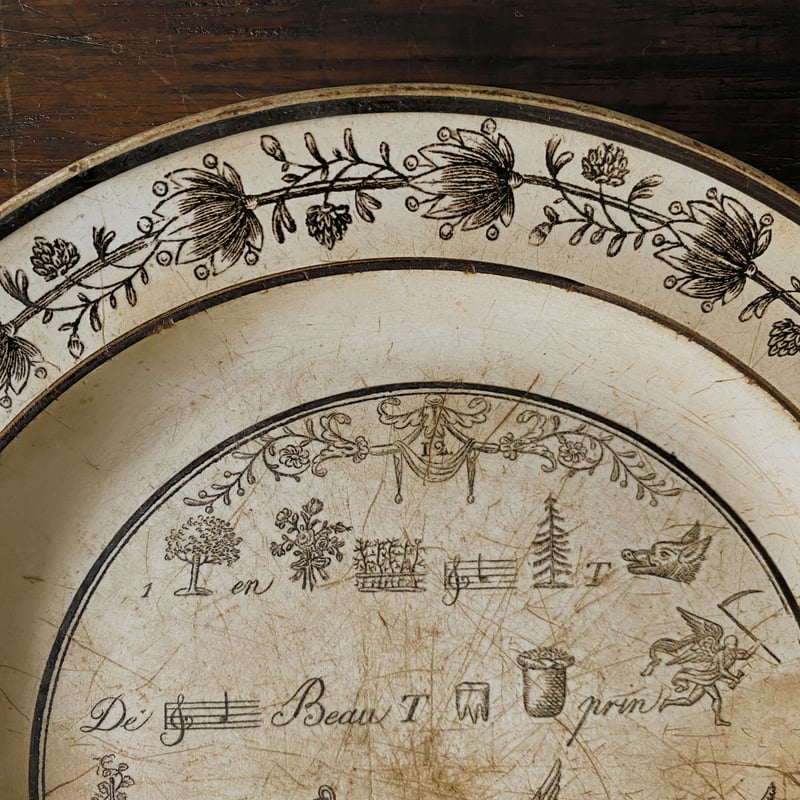 12
1 en T
Dé Beau T prin